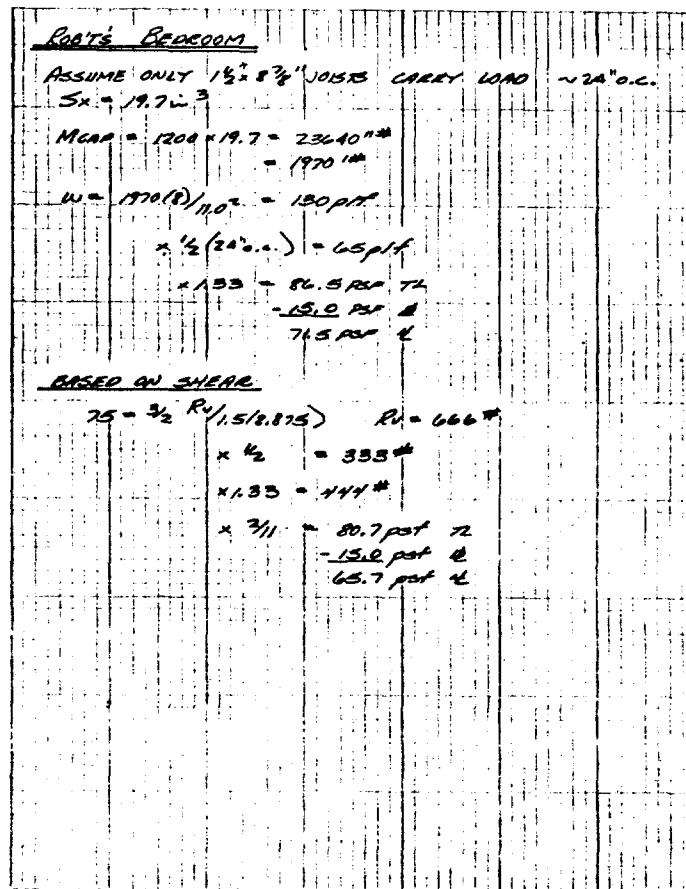 ROB'T'S BEDROOM
ASSUME ONLY 1½" x 8⅞" JOISTS CARRY LOAD ~24" o.c.
Sx = 19.7 in³
MCAP = 1200 x 19.7 = 23640 "#
= 1970 '#
w = 1970(8)/11.0² = 130 plf
x ½ (24" o.c.) = 65 plf
x 1.33 = 86.5 PSF TL
- 15.0 PSF DL
71.5 PSF LL
BASED ON SHEAR
75 = 3/2 Rv/1.5(8.875) Rv = 666 #
x ½ = 333 #
x 1.33 = 444 #
x 2/11 = 80.7 psf TL
- 15.0 psf DL
65.7 psf LL